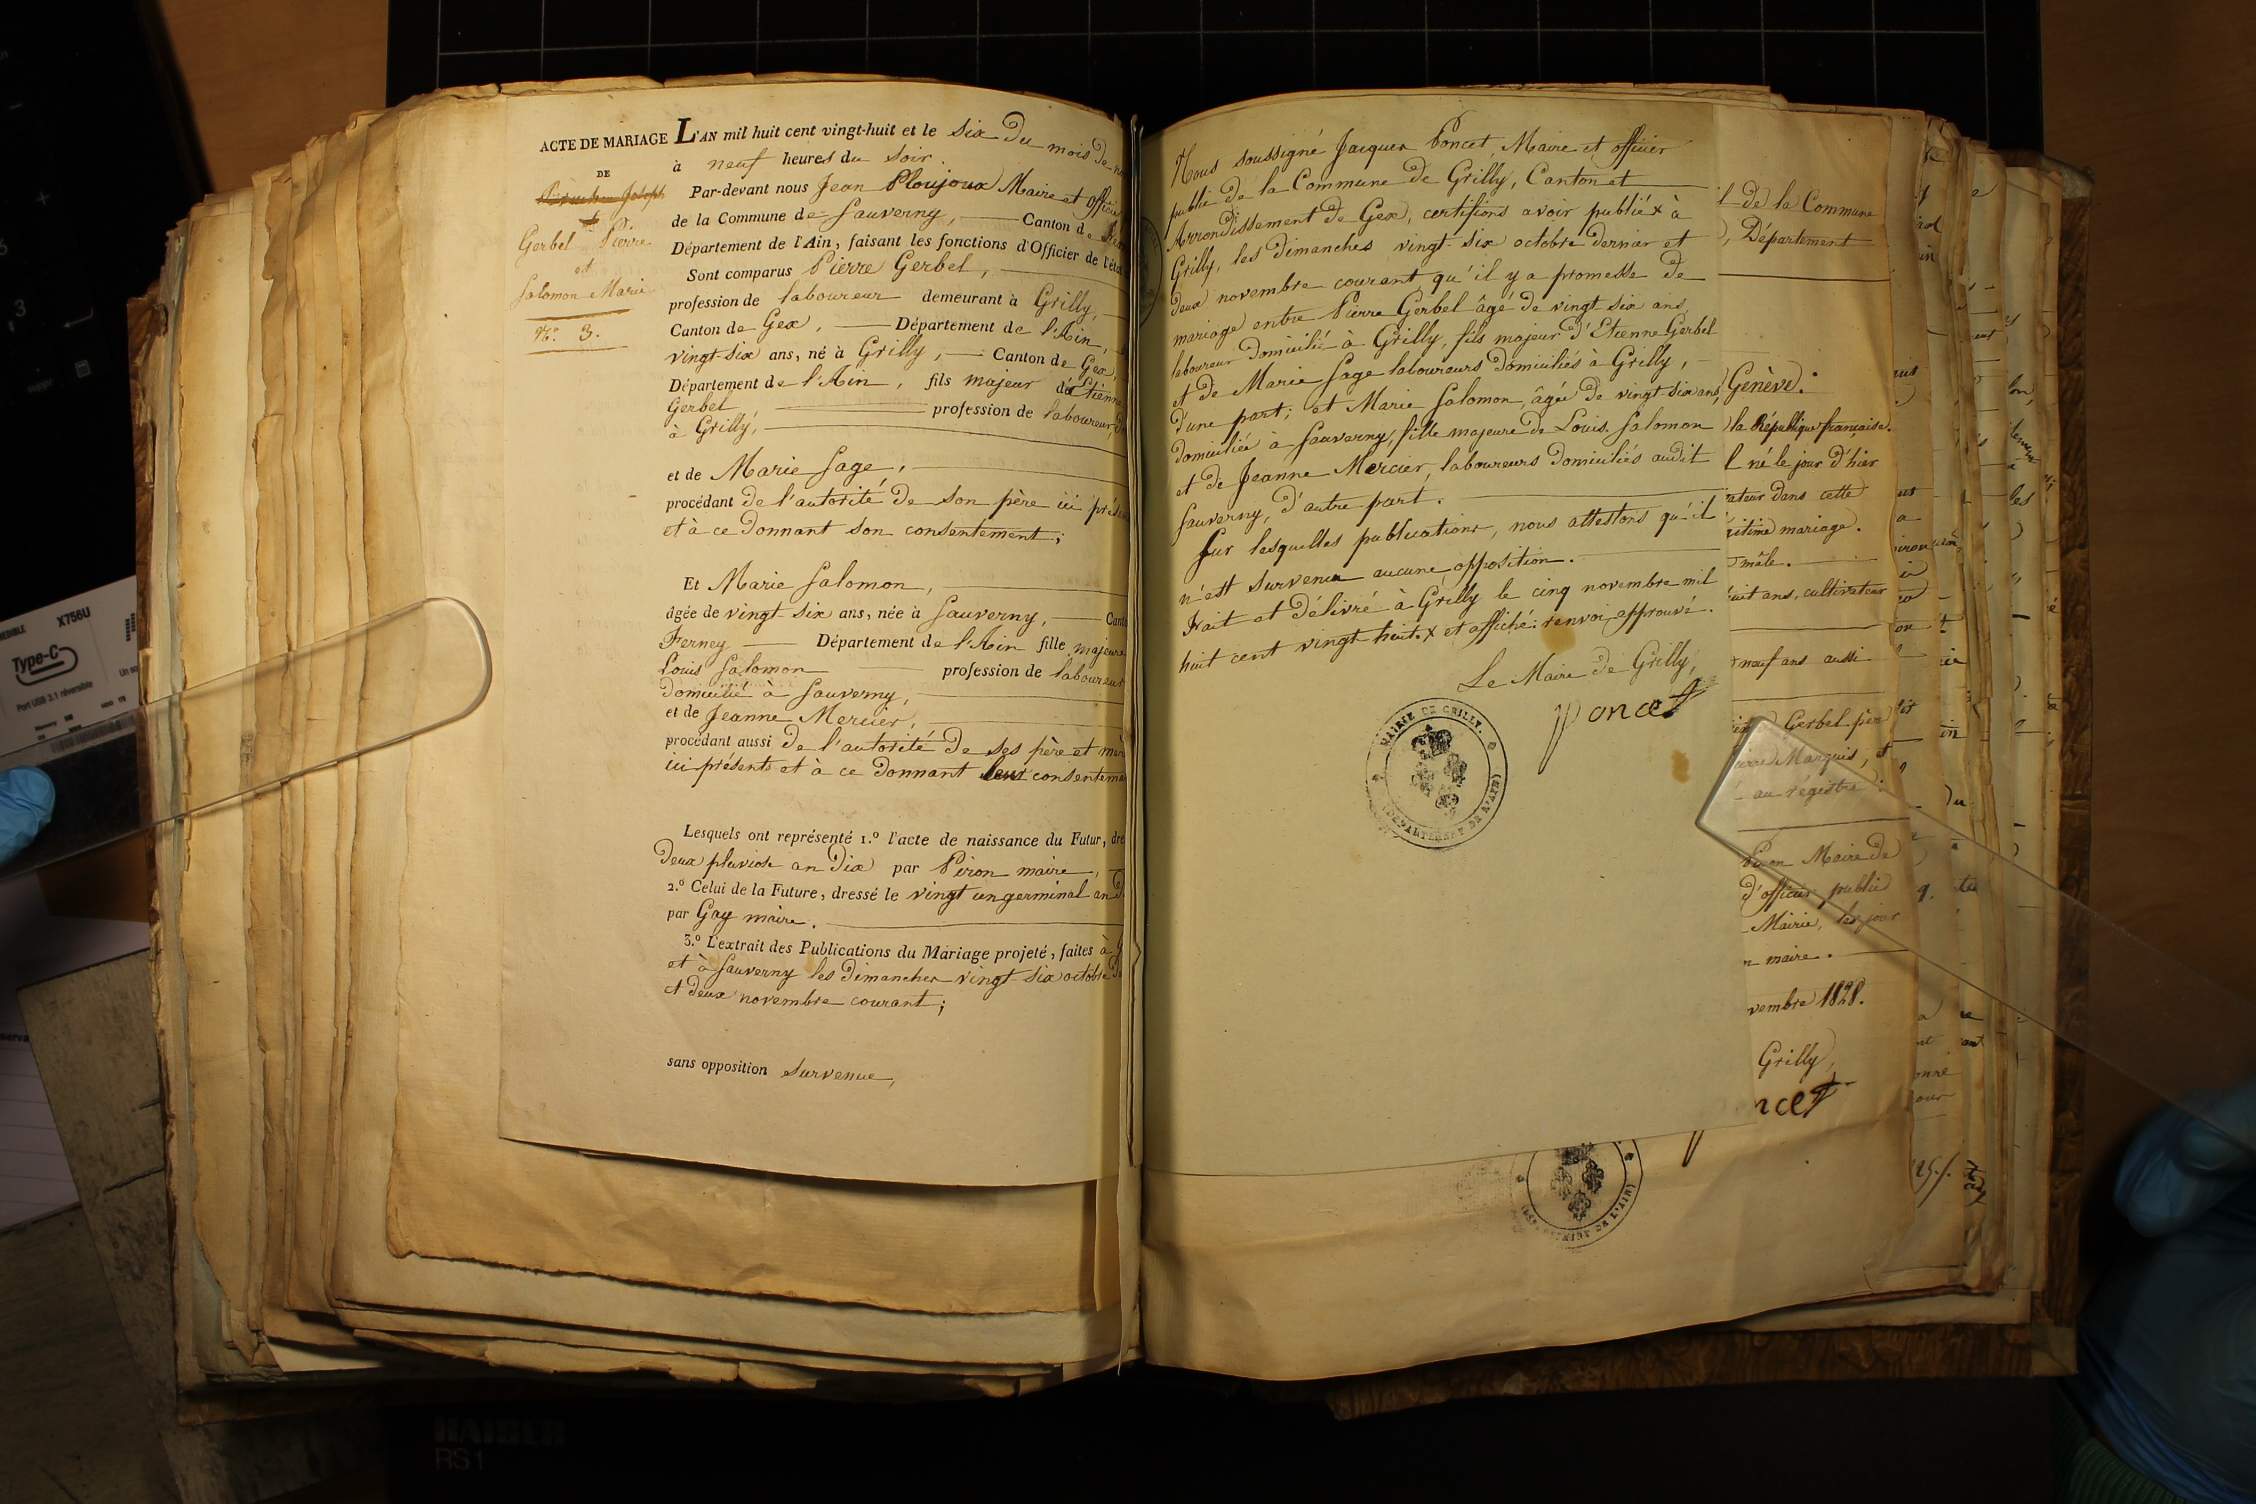 ACTE DE MARIAGE
DE
Gerbel Pierre
et
Salomon Marie
N.° 3.
L'AN mil huit cent vingt-huit et le six du mois de
à neuf heures du soir.
Par-devant nous Jean Ploujoux Maire et officier
de la Commune de Sauverny, Canton de
Département de l'Ain, faisant les fonctions d'Officier de l'éta
Sont comparus Pierre Gerbel,
profession de laboureur demeurant à Grilly,
Canton de Gex, Département de l'Ain,
vingt-six ans, né à Grilly, Canton de Gex,
Département de l'Ain, fils majeur d'Etienne
Gerbel profession de laboureur,
à Grilly,
et de Marie Sage,
procédant de l'autorité de son père ici prés
et à ce donnant son consentement;
Et Marie Salomon,
âgée de vingt six ans, née à Sauverny, Cant
Ferney Département de l'Ain fille majeure
Louis Salomon profession de laboureur
domicilié à Sauverny,
et de Jeanne Mercier,
procédant aussi de l'autorité de ses père et mèr
ici présents et à ce donnant leur consenteme
Lesquels ont représenté 1.° l'acte de naissance du Futur, dre
deux pluviose an dix par Piron maire,
2.° Celui de la Future, dressé le vingt un germinal an
par Gay maire.
3.° L'extrait des Publications du Mariage projeté, faites à
et à Sauverny les dimanches vingt-six octobre
et deux novembre courant;
sans opposition survenue,
Nous soussigné Jacques Poncet, Maire et officier
public de la Commune de Grilly, Canton et
Arrondissement de Gex, certifions avoir publié x à
Grilly, les dimanches vingt-six octobre dernier et
deux novembre courant, qu'il y a promesse de
mariage entre Pierre Gerbel âgé de vingt six ans,
laboureur domicilié à Grilly, fils majeur d'Etienne Gerbel
et de Marie Sage laboureurs domiciliés à Grilly,
d'une part; et Marie Salomon, âgée de vingt six ans,
domiciliée à Sauverny, fille majeure de Louis Salomon
et de Jeanne Mercier, laboureurs domiciliés audit
Sauverny, d'autre part.
Sur lesquelles publications, nous attestons qu'il
n'est survenu aucune opposition.
Fait et délivré à Grilly le cinq novembre mil
huit cent vingt huit. x et affiché: renvoi approuvé.
Le Maire de Grilly,
Poncet
MAIRIE DE GRILLY.
(DÉPARTEMENT DE L'AIN)
l de la Commune
), Département
Genève.
la République française.
l né le jour d'hier
ateur dans cette
gitime mariage.
mâle.
huit ans, cultivateur
neuf ans aussi
Gerbel père
Pierre Marquis, et
au régistre
Piron Maire de
d'officier public
Mairie, les jour
n maire.
vembre 1828.
Grilly,
ncet
X756U
Type-C
Port USB 3.1 réversible
KAISER
RS1